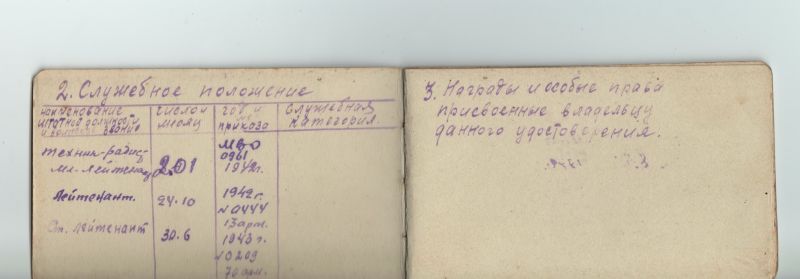 2. Служебное положение
наименование
штатной должност
и воинское звание
число и
месяц
год и №
приказа
Служебная
категория.
техник-радис-
мл-лейтенант
2.01
МВО
0961
1942г.
Лейтенант.
24.10
1942г.
№0444
13арм.
Ст. лейтенант
30.6
1943г.
№0209
70арм.
3. Награды и особые права
присвоенные владельцу
данного удостоверения.